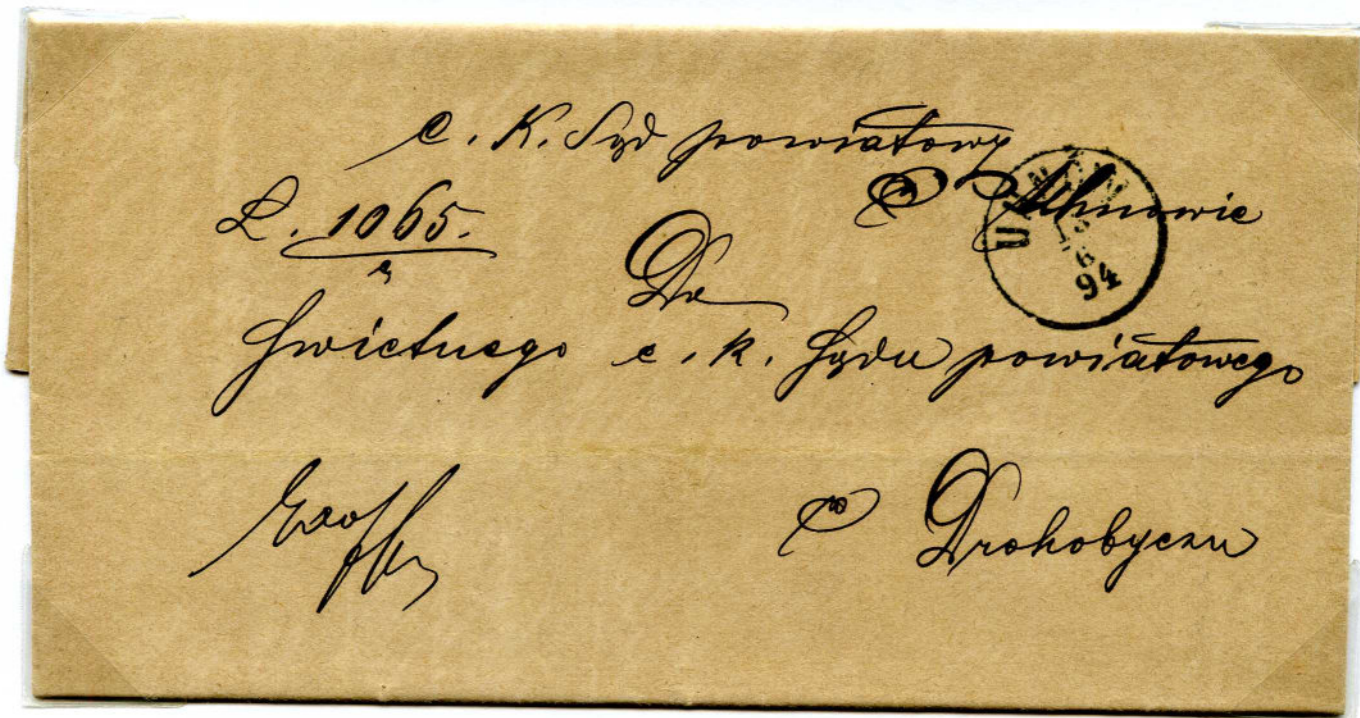 c. K. Sąd powiatowy
w Uhnowie
L. 1065.
Do
Świetnego c. k. Sądu powiatowego
w Drohobyczu
UHNÓW
6
94